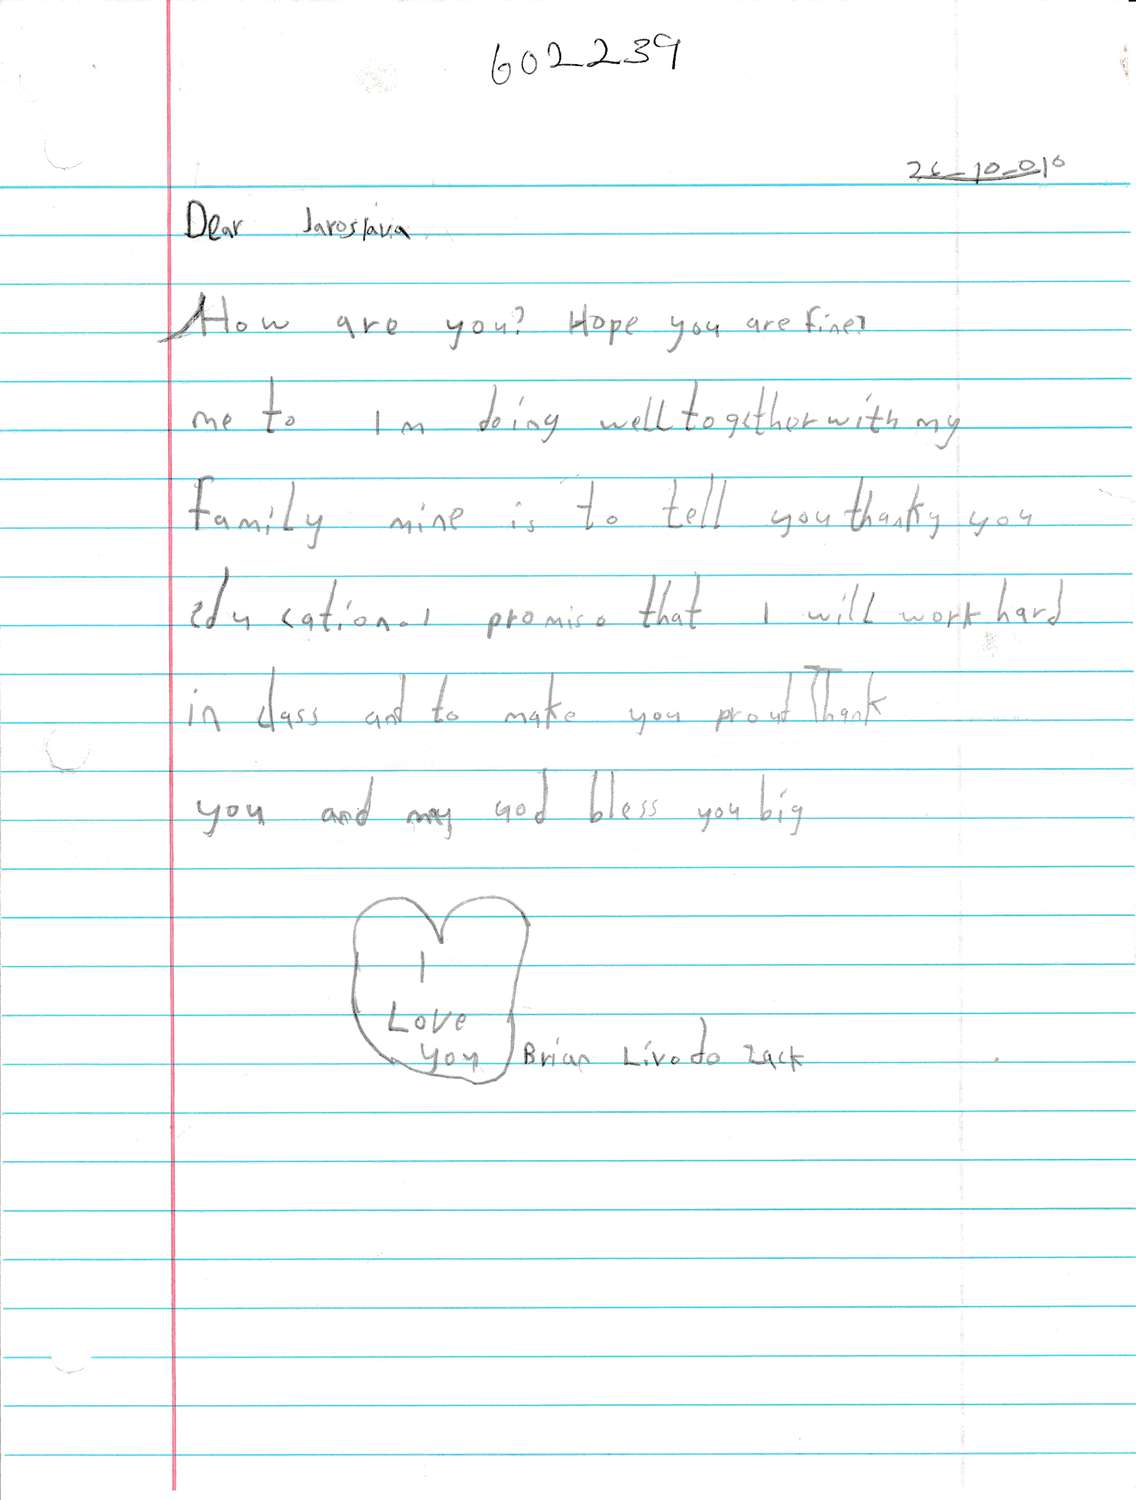 602239
26-10-010
Dear Jaroslava
How are you? Hope you are fine?
me to I m doing well together with my
Family mine is to tell you thanky you
education. I promise that I will work hard
in class and to make you proud Thank
you and may God bless you big
I
Love
you Brian Livodo Zack